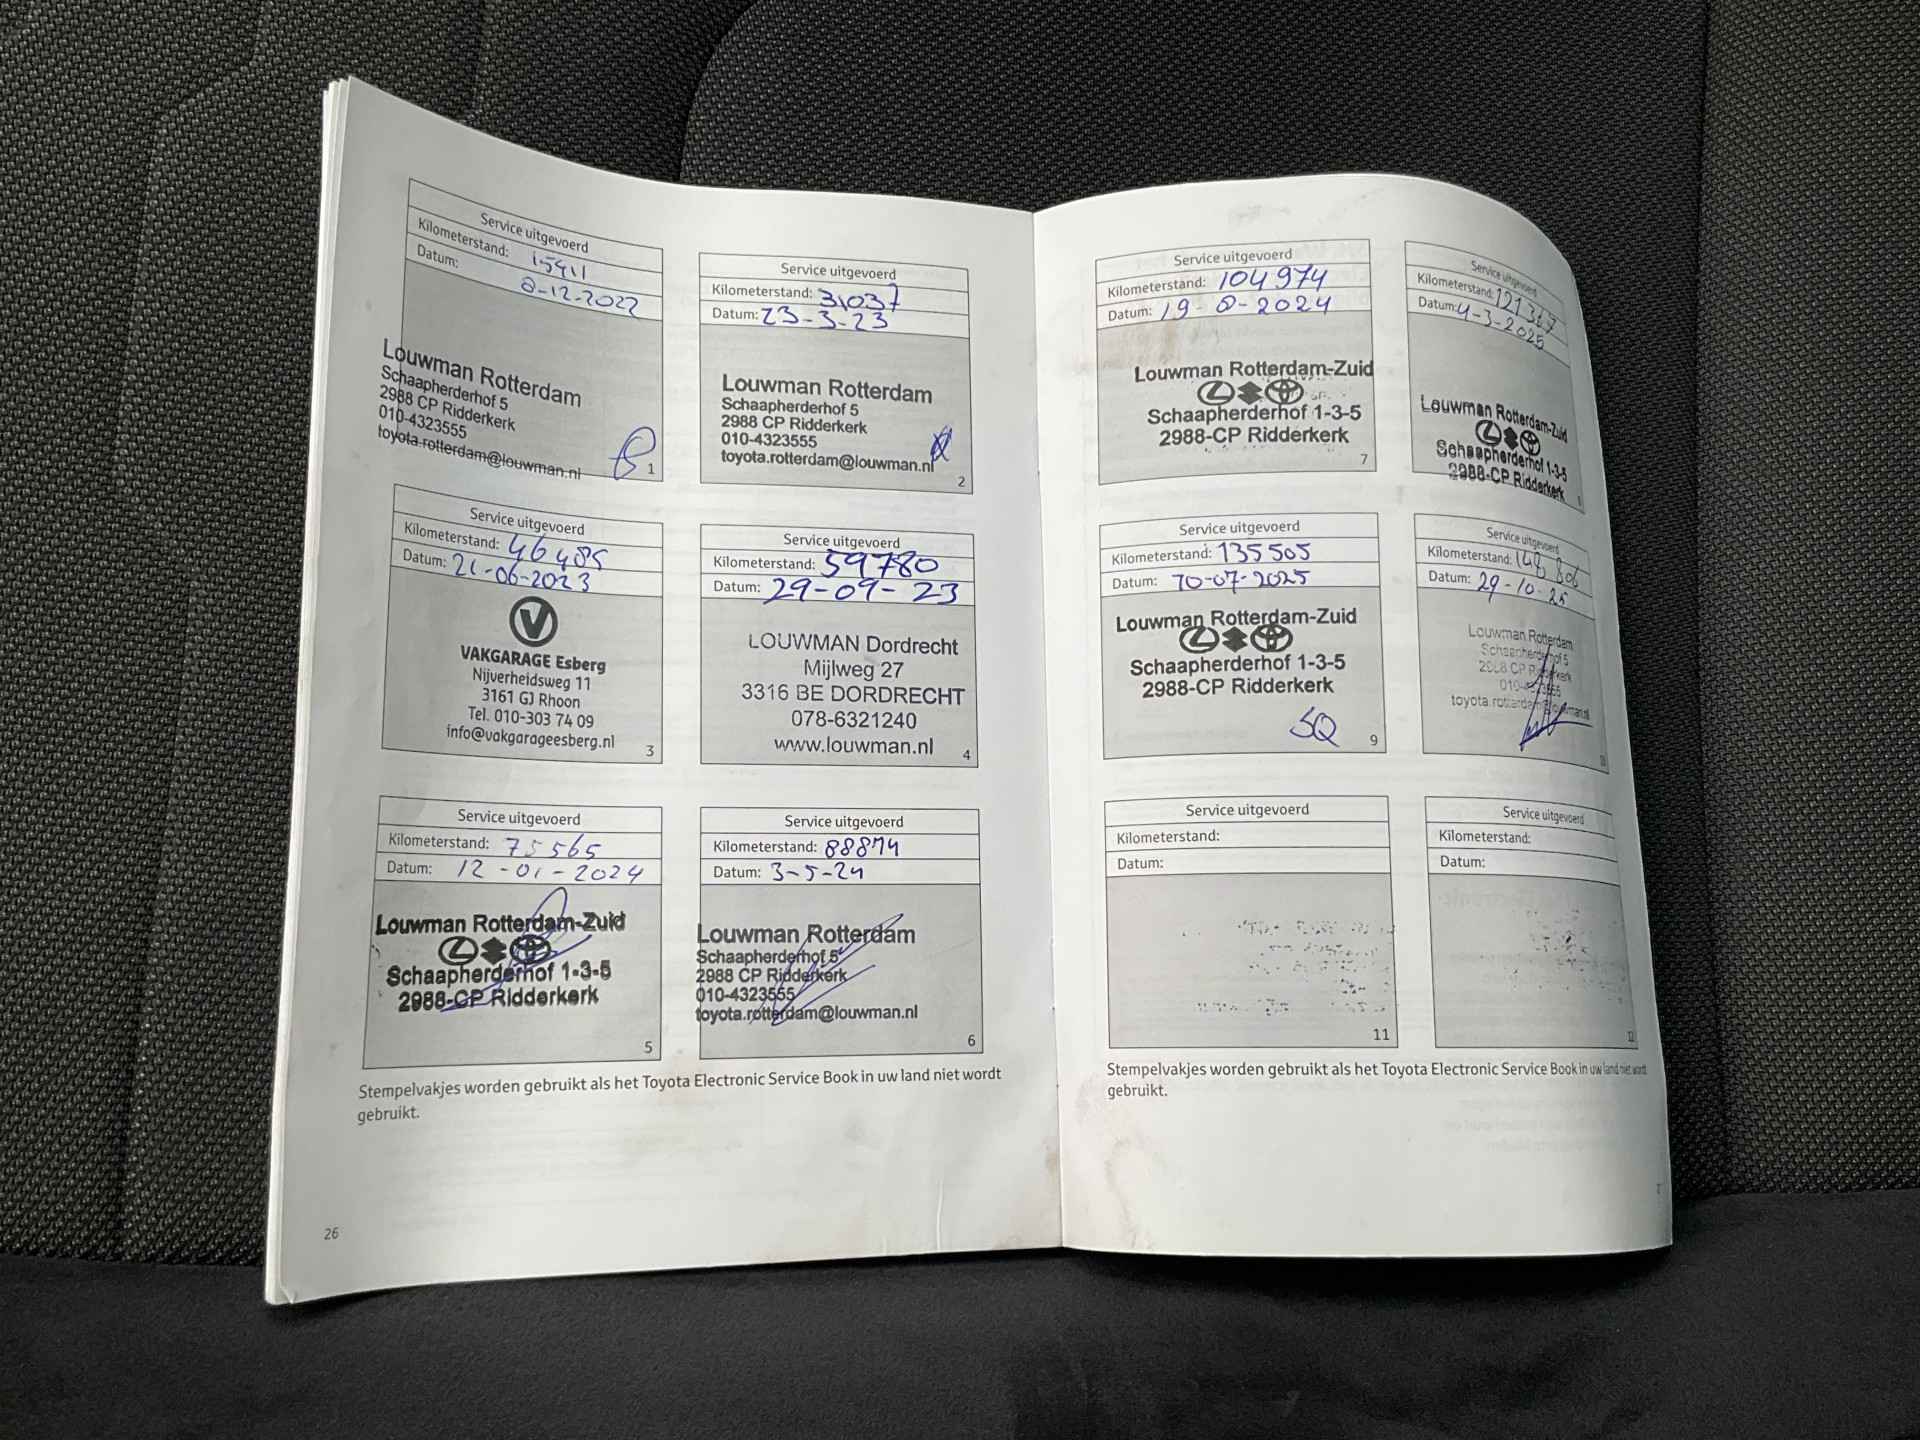 Service uitgevoerd
Kilometerstand: 15411
Datum: 8-12-2022
Louwman Rotterdam
Schaapherderhof 5
2988 CP Ridderkerk
010-4323555
toyota.rotterdam@louwman.nl
1
Service uitgevoerd
Kilometerstand: 31037
Datum: 23-3-23
Louwman Rotterdam
Schaapherderhof 5
2988 CP Ridderkerk
010-4323555
toyota.rotterdam@louwman.nl
2
Service uitgevoerd
Kilometerstand: 46485
Datum: 21-06-2023
V
VAKGARAGE Esberg
Nijverheidsweg 11
3161 GJ Rhoon
Tel. 010-303 74 09
info@vakgarageesberg.nl
3
Service uitgevoerd
Kilometerstand: 59780
Datum: 29-09-23
LOUWMAN Dordrecht
Mijlweg 27
3316 BE DORDRECHT
078-6321240
www.louwman.nl
4
Service uitgevoerd
Kilometerstand: 75565
Datum: 12-01-2024
Louwman Rotterdam-Zuid
Schaapherderhof 1-3-5
2988-CP Ridderkerk
5
Service uitgevoerd
Kilometerstand: 88874
Datum: 3-5-24
Louwman Rotterdam
Schaapherderhof 5
2988 CP Ridderkerk
010-4323555
toyota.rotterdam@louwman.nl
6
Stempelvakjes worden gebruikt als het Toyota Electronic Service Book in uw land niet wordt
gebruikt.
26
Service uitgevoerd
Kilometerstand: 104974
Datum: 19-8-2024
Louwman Rotterdam-Zuid
Schaapherderhof 1-3-5
2988-CP Ridderkerk
7
Service uitgevoerd
Kilometerstand: 121347
Datum: 4-3-2025
Louwman Rotterdam-Zuid
Schaapherderhof 1-3-5
2988-CP Ridderkerk
Service uitgevoerd
Kilometerstand: 135505
Datum: 10-07-2025
Louwman Rotterdam-Zuid
Schaapherderhof 1-3-5
2988-CP Ridderkerk
SQ
9
Service uitgevoerd
Kilometerstand: 148806
Datum: 29-10-25
Louwman Rotterdam
Schaapherderhof 5
2988 CP Ridderkerk
010-4323555
toyota.rotterdam@louwman.nl
10
Service uitgevoerd
Kilometerstand:
Datum:
11
Service uitgevoerd
Kilometerstand:
Datum:
12
Stempelvakjes worden gebruikt als het Toyota Electronic Service Book in uw land niet wordt
gebruikt.